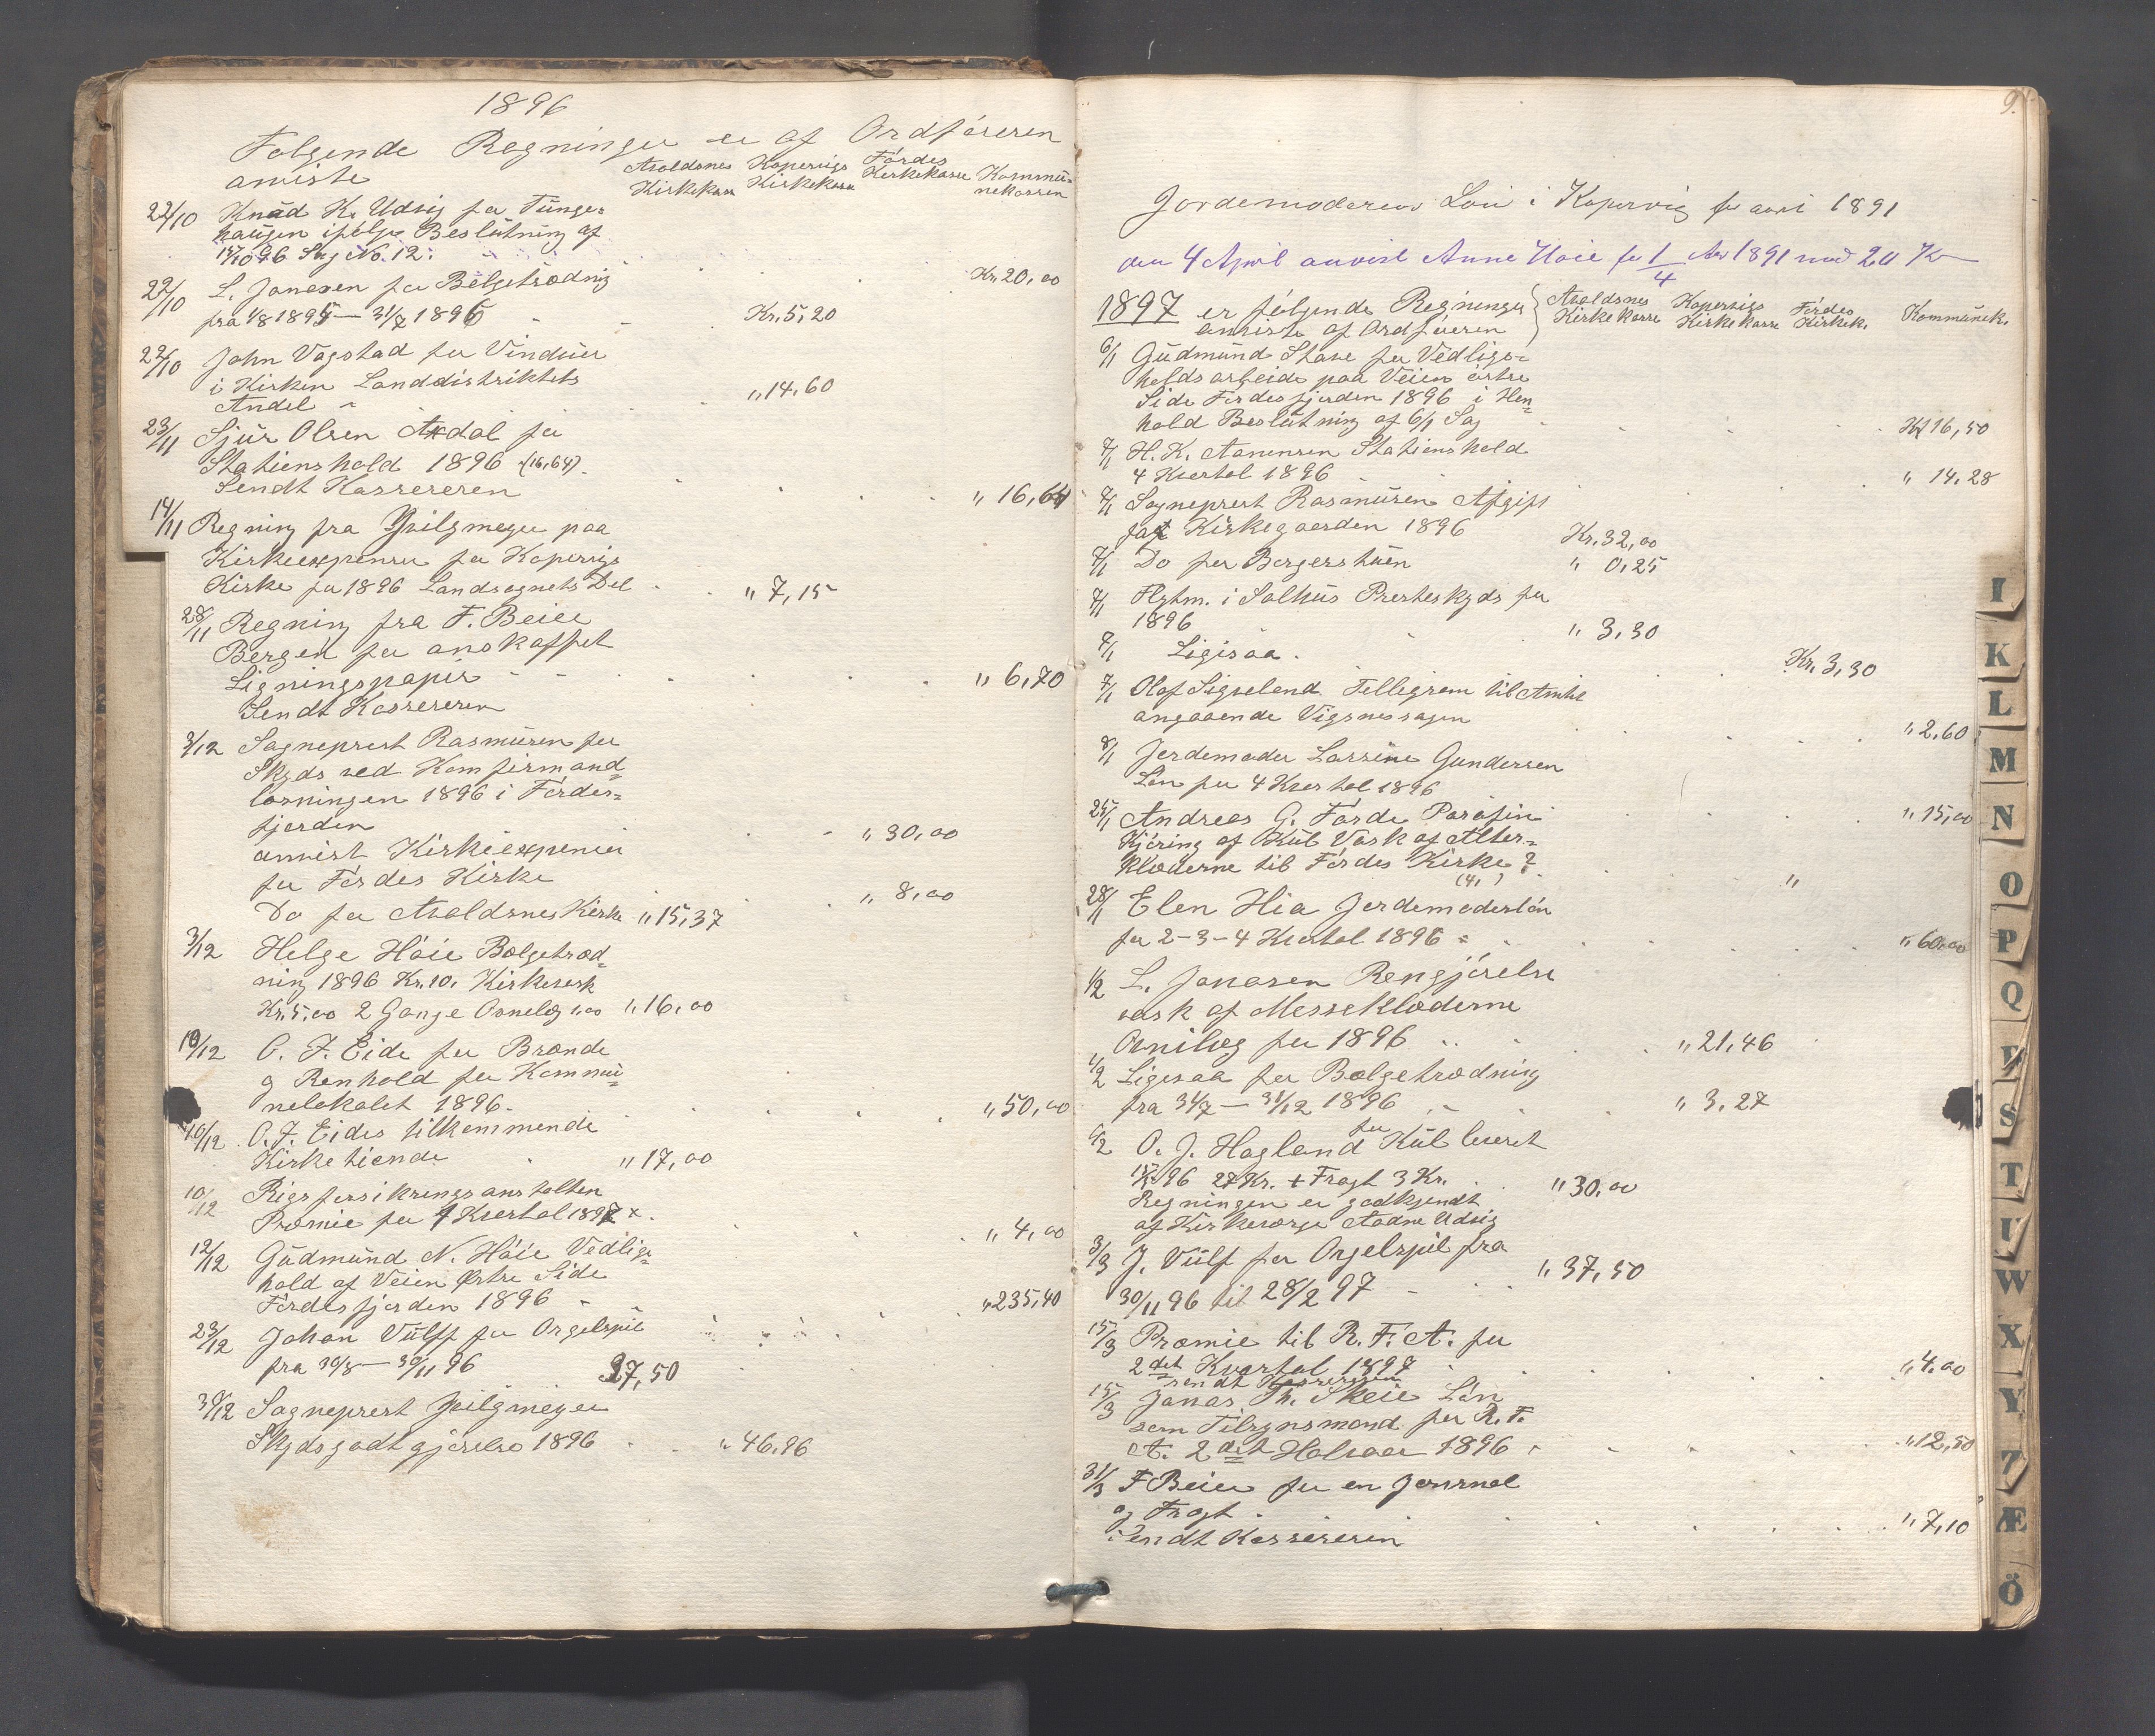 1896
Følgende Regninger er af Ordføreren
anviste
Avaldsnes Kirkekasse
Kopervigs Kirkekasse
Førdes Kirkekasse
Kommunekassen
22/10 Knud K. Udvig for Tünge-
haugen ifølge Beslütning af
15/10 96 Sag No. 12. Kr. 20,00
22/10 L. Jonasen for Belgetrædnig
fra 1/8 1895 — 31/7 1896 Kr. 5,20
22/10 John Vagstad for Vinduer
i Kirken Landdistriktets
Andel " 14,60
23/11 Sjur Olsen Axdal for
Stationshold 1896 (16,64).
Sendt Kassereren " 16,64
14/11 Regning fra Hvilgmeyer paa
Kirkeexpenser for Kopervigs
Kirke for 1896 Landsognets Del " 7,15
28/11 Regning fra F. Beier
Bergen for anskaffet
Ligningspapir " 6,70
Sendt Kassereren
3/12 Sogneprest Rasmüsen for
Skyds ved Komfirmand-
læsningen 1896 i Førdes-
fjorden " 30,00
anvist Kirkeexpenser
for Førdes Kirke " 8,00
Do for Avaldsnes Kirke " 15,37
3/12 Helge Høie Bælgetræd-
ning 1896 Kr. 10. Kirkevask
Kr. 5,00 2 Gange Ovnelæg 1,00 " 16,00
10/12 O. J. Eide for Brænde
og Renhold for Kommü-
nelokalet 1896. " 50,00
10/12 O. J. Eides tilkommende
Kirketiende " 17,00
10/12 Rigsforsikringsanstalten
Præmie for 1 Kvertal 1897 x. " 4,00
12/12 Güdmünd N. Høie Vedlige-
hold af Veien Østre Side
Førdesfjorden 1896 " 235,40
23/12 Johan Vülff for Orgelspil
fra 30/8 — 30/11 96 37,50
30/12 Sogneprest Hvilgmeyer
Skydsgodtgjørelse 1896 " 46,96
9.
Jordemoderens Løn i Kopervig for aaret 1891
den 4 April anvist Anne Høie for 1/4 Aar 1891 med 20 Kr
1897 er følgende Regninger
anviste af Ordføreren
Avaldsnes Kirkekasse
Kopervigs Kirkekasse
Førdes Kirkek.
Kommünek.
6/1 Güdmünd Stave for Vedlige-
holdsarbeide paa Veien østre
Side Førdesfjorden 1896 i Hen-
hold Beslütning af 6/1 Sag Kr 16,50
7/1 H. K. Aanensen Stationshold
4 Kvertal 1896 " 14,28
7/1 Sogneprest Rasmüsen Afgift
for Kirkegaarden 1896 Kr. 32,00
7/1 Do for Borgerstüen " 0,25
7/1 Flytm. i Salhüs Presteskyds for
1896 " 3,30
7/1 Ligisaa. Kr. 3,30
7/1 Olaf Sigveland Tellegram til Amtet
angaaende Vigsnessagen " 2,60
8/1 Jordemoder Lassine Gundersen
Løn for 4 Kvertal 1896 " 15,00
25/1 Andreas G. Førde Parafin
Kjøring af Kül Vask af Alter-
klæderne til Førdes Kirke ?
(4, ) "
28/1 Elen Hia Jordemoderløn
for 2-3-4 Kvertal 1896 " 60,00
1/2 L. Jonasen Rengjørelse
vask af Messeklæderne
Ovnilæg for 1896 " 21,46
1/2 Ligesaa for Bælgetrædning
fra 31/7 — 31/12 1896 " 3,27
6/2 O. J. Hagland for Kül leveret
96 27 Kr. + Fragt 3 Kr. " 30,00
Regningen er godkjendt
af Kirkeværge Aadne Udvig
3/3 J. Vülf for Orgelspil fra
30/11 96 til 28/2 97 " 37,50
15/3 Præmie til R. F. A. for
2det Kvartal 1897 " 4,00
sendt Kassereren
15/3 Jonas Th. Skeie Løn
som Tilsynsmand for R. F.
A. 2det Halvaar 1896 " 12,50
31/3 F Beier for en Journal
og Fragt " 7,10
Sendt Kassereren
I
K
L
M
N
O
P
Q
S
T
U
W
X
Y
Z
Æ
Ö